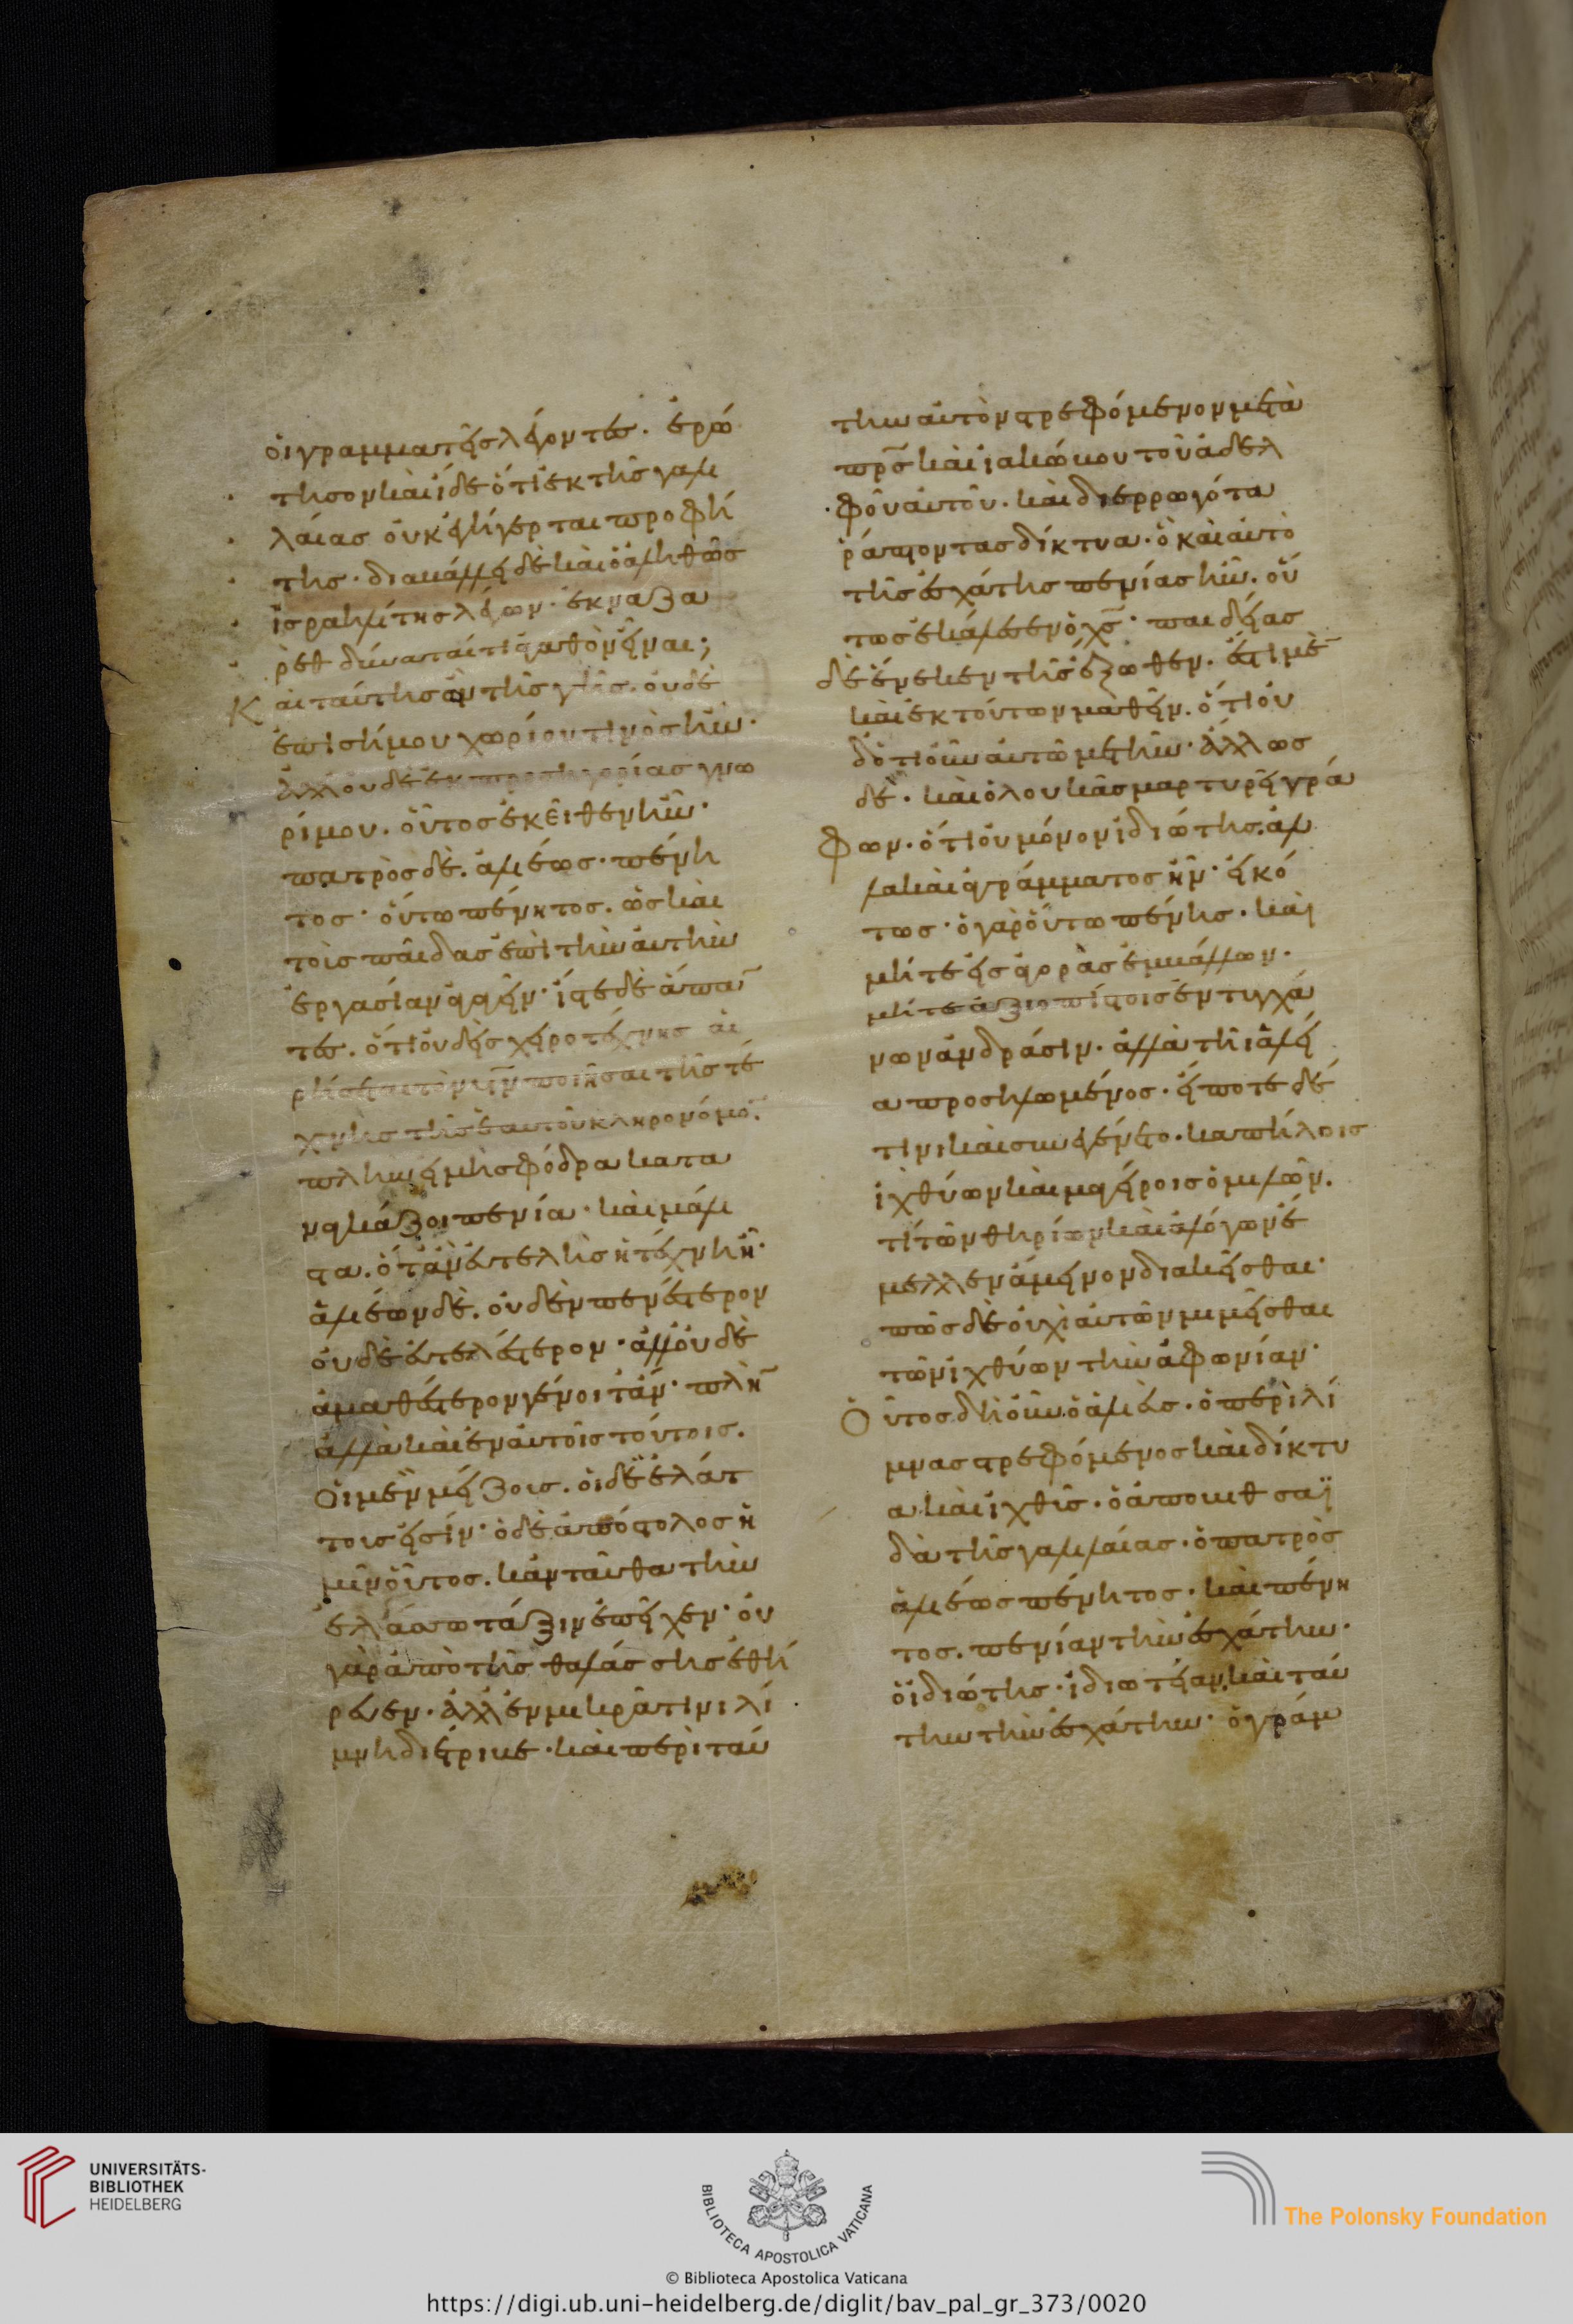 οἱ γραμματεῖς λέγοντες. ἐρώ
τησον καὶ ἴδε ὅτι ἐκ τῆς γαλι
λαίας οὐκ ἐγήγερται προφή
της· διαβάλλει δὲ καὶ ὁ ἀληθῶς
ἰσραηλίτης λέγων· ἐκ ναζα
ρὲθ δύναταί τι ἀγαθὸν εἶναι;
Καὶ ταύτης ὢν τῆς γῆς. οὐδὲ
ἐπισήμου χωρίου τινὸς ἦν·
ἀλλ' οὐδὲ ἐκ προσηγορίας γνω
ρίμου. οὗτος ἐκεῖθεν ἦν·
πατρὸς δὲ. ἁλιέως· πένη
τος· οὕτω πένητος. ὡς καὶ
τοὺς παῖδας ἐπὶ τὴν αὐτὴν
ἐργασίαν ἀγαγεῖν· ἴστε δὲ ἅπα̅
τες. ὅτι οὐδεὶς χειροτέχνης αἱ
ρήσεται τὸν υἱὸν ποιῆσαι τῆς τέ
χνης τῆς ἑαυτοῦ κληρονόμο̅
πλὴν εἰ μὴ σφόδρα κατα
ναγκάζοι πενία· καὶ μάλι
στα. ὅταν εὐτελὴς ἡ τέχνη ἦ·
ἁλιέων δὲ. οὐδὲν πενέστερον
οὐδὲ εὐτελέστερον· ἀλλ' οὐδὲ
ἀμαθέστερον γένοιτ' ἄν· πλὴ̅
ἀλλὰ καὶ ἐν αὐτοῖς τούτοις.
οἱ μὲν μείζους. οἱ δὲ ἐλάτ
τους εἰσίν· ὁ δὲ ἀπόστολος ἡ
μῖν οὗτος. κἀνταῦθα τὴν
ἐλάσσω τάξιν ἐπεῖχεν· οὐ
γὰρ ἀπὸ τῆς θαλάσσης ἐθή
ρευεν. ἀλλ' ἐν μικρᾶ τινι λί
μνη διέτριβε· καὶ περὶ ταύ
την αὐτὸν στρεφόμενον μετὰ
πρ̅ς καὶ ἰακώβου τοῦ ἀδελ
φοῦ αὐτοῦ. καὶ διερρωγότα
ῥάπτοντας δίκτυα. ὃ καὶ αὐτὸ
τῆς ἐσχάτης πενίας ἦν. οὕ
τως ἐκάλεσεν ὁ χ̅ς· παιδείας
δὲ ἕνεκεν τῆς ἔξωθεν. ἔστι μὲ̅
καὶ ἐκ τούτων μαθεῖν. ὅτι οὐ
δ' ὁτιοῦν αὐτῶ μετῆν· ἄλλως
δὲ. καὶ ὁ λουκᾶς μαρτυρεῖ γρά
φων. ὅτι οὐ μόνον ἰδιώτης. ἀλ
λὰ καὶ ἀγράμματος ἦν· εἰκό
τως· ὁ γὰρ οὕτω πένης. καὶ
μήτε εἰς ἀγορὰς ἐμβάλλων.
μήτε ἀξιοπίστοις ἐντυγχά
νων ἀνδράσιν. ἀλλὰ τῆ ἁλεία
προσηλωμένος. εἴποτε δέ
τινι καὶ συνεγένετο. καπήλοις
ἰχθύων καὶ μαγείροις ὁμιλῶν.
τί τῶν θηρίων καὶ ἀλόγων ἔ
μελλεν ἄμεινον διακεῖσθαι·
πῶς δὲ οὐχὶ αὐτῶν μιμεῖσθαι
τῶν ἰχθύων τὴν ἀφωνίαν·
Οὗτος δὴ οὖν ὁ ἁλιεὺς. ὁ περὶ λί
μνας στρεφόμενος καὶ δίκτυ
α καὶ ἰχθῦς. ὁ ἀπὸ βιθσαϊ
δὰ τῆς γαλιλαίας. ὁ πατρὸς
ἁλιέως πένητος. καὶ πένη
τος. πενίαν τὴν ἐσχάτην.
ὁ ἰδιώτης. ἰδιωτείαν καὶ ταύ
την τὴν ἐσχάτην· ὁ γράμ
UNIVERSITÄTS-
BIBLIOTHEK
HEIDELBERG
BIBLIOTECA APOSTOLICA VATICANA
The Polonsky Foundation
© Biblioteca Apostolica Vaticana
https://digi.ub.uni-heidelberg.de/diglit/bav_pal_gr_373/0020